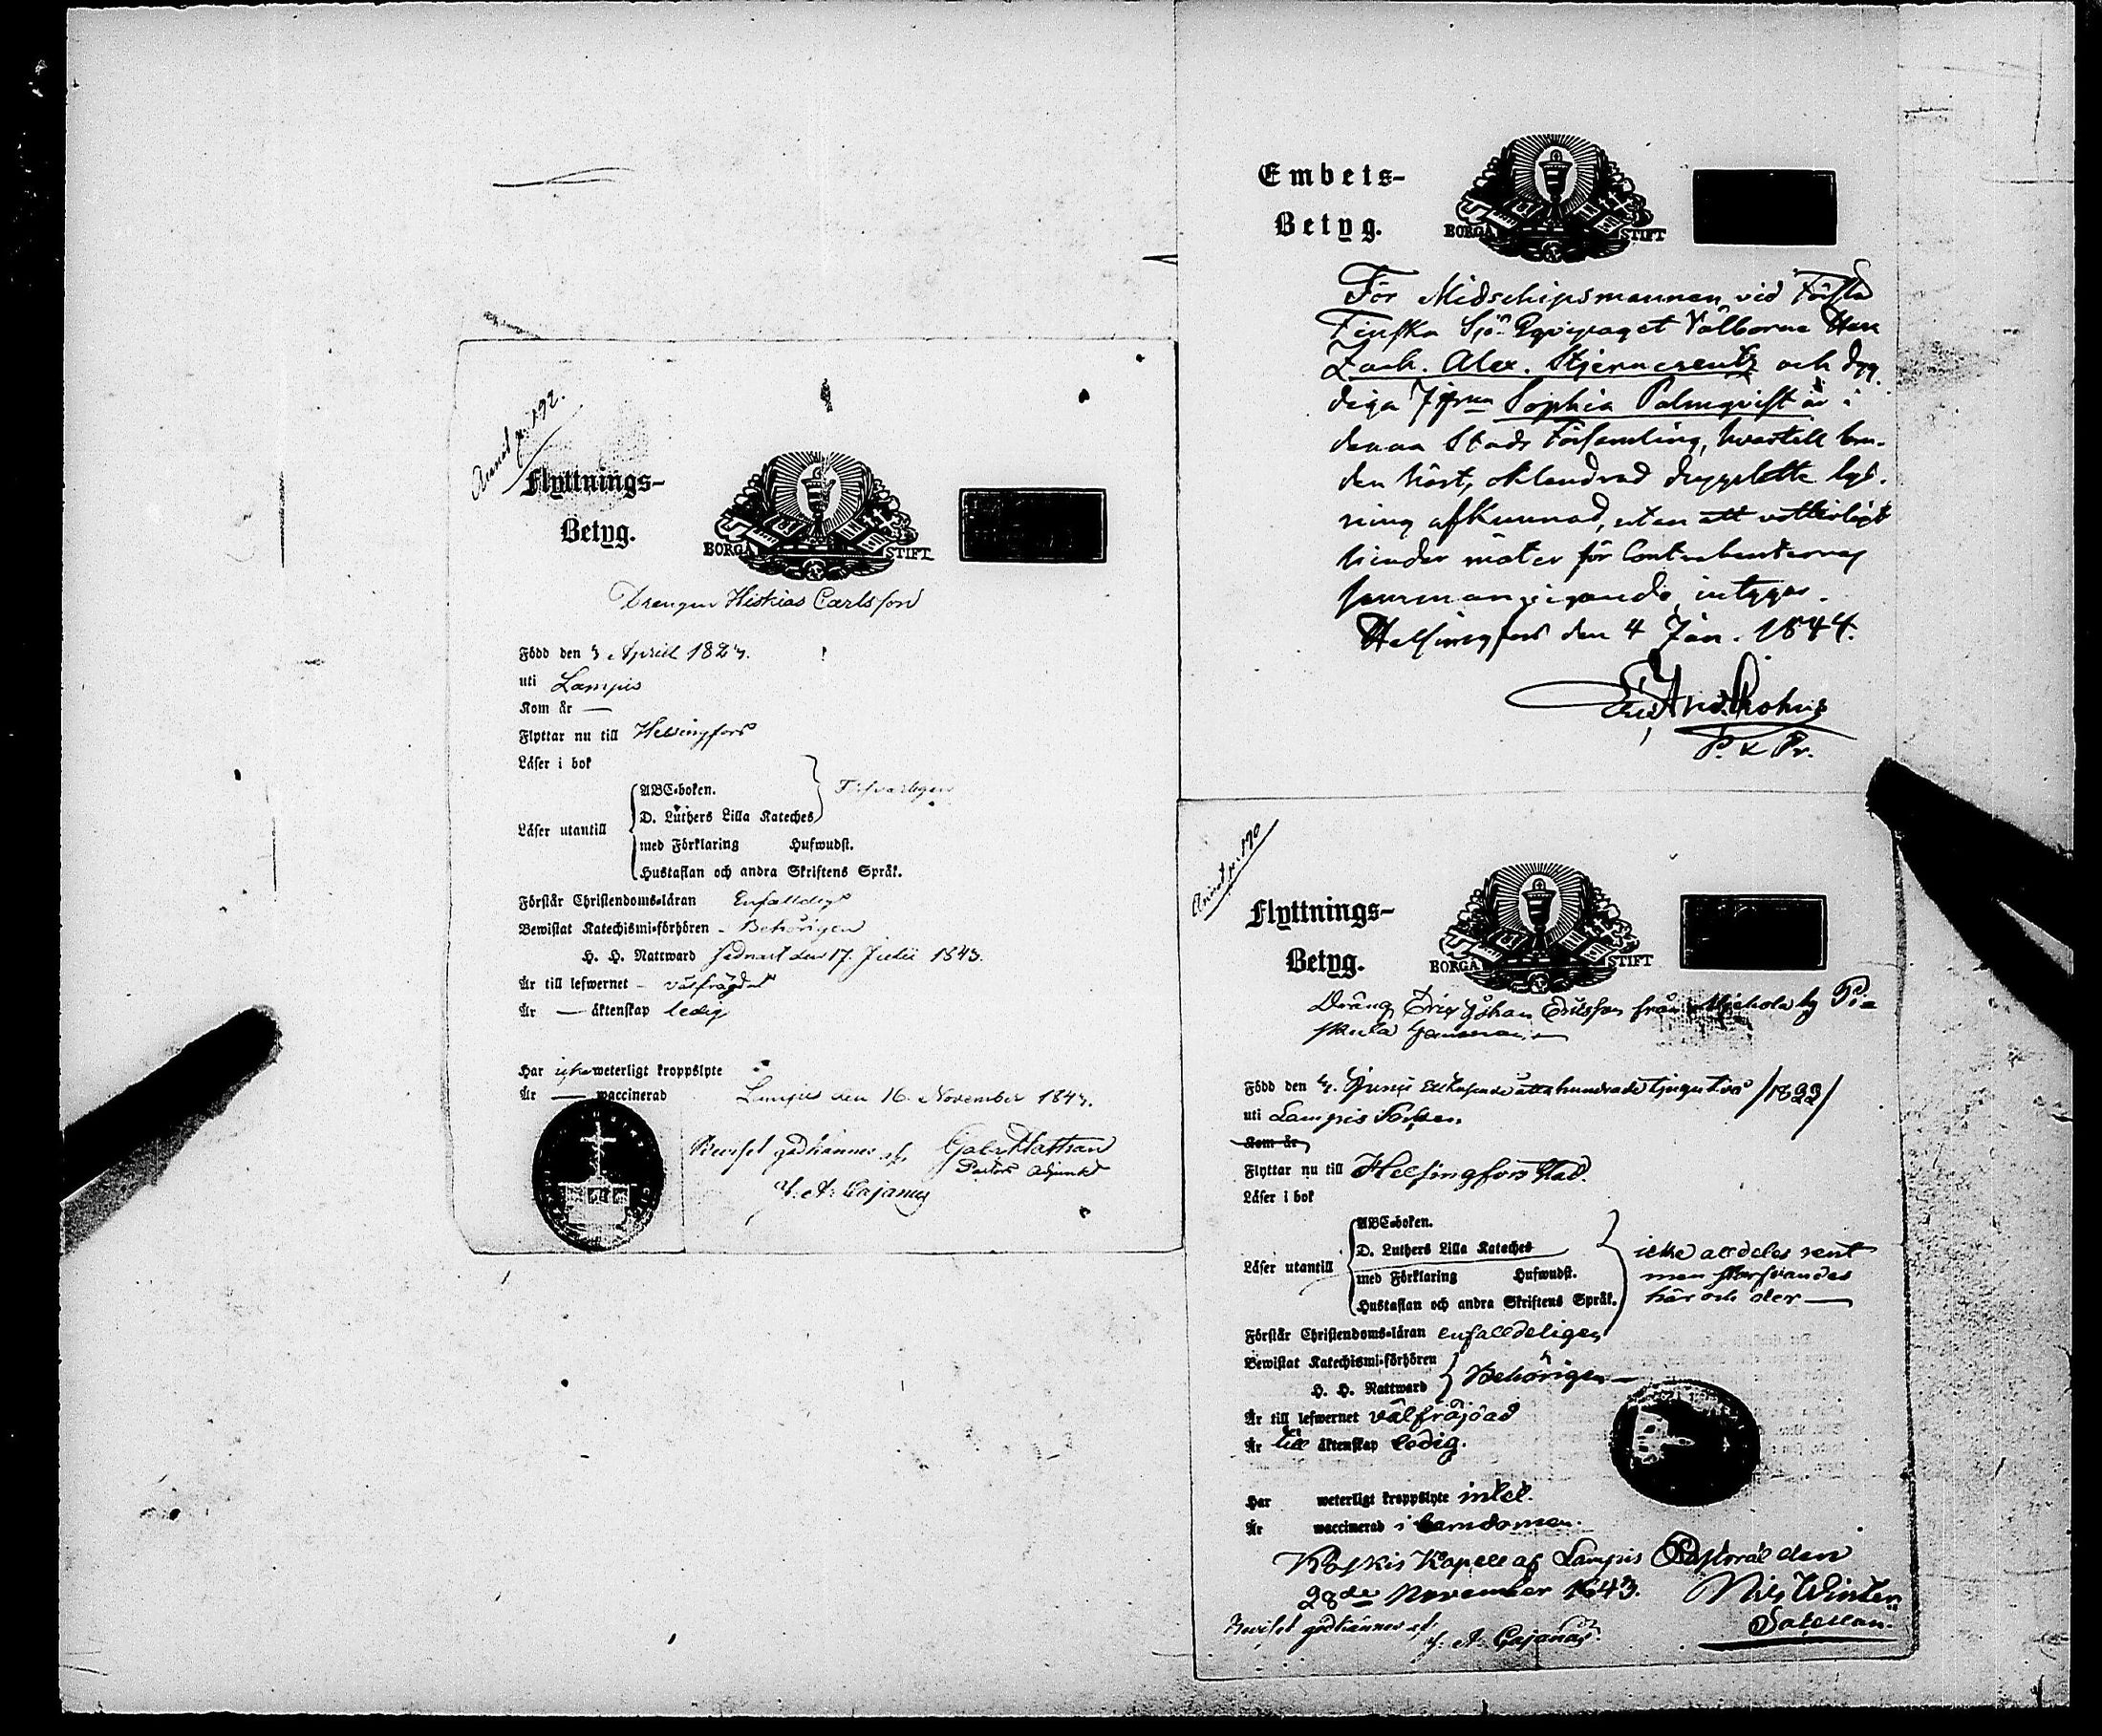 Flyttnings-
Betyg.
BORGÅ STIFT
Drengen Hiskias Carlsson
Född den 3 April 1823.
uti Lampis
Kom år —
Flyttar nu till Helsingfors
Läser i bok
Läser utantill
ABC-boken.
D. Luthers Lilla Kateches
med Förklaring Hufwudst.
Hustaflan och andra Skriftens Språk.
Förswarligen
Förstår Christendoms-läran Enfalldigt
Bewistat Katechismi-förhören - Behörigen
H. H. Nattward sednast den 17. Julii 1843.
Är till lefwernet - välfrägdad
Är — äktenskap ledig
Har icke weterligt kroppslyte
Är — waccinerad
Lampis den 16. November 1843.
Beviset godkännes af
Pastors Adjunkt
Cajanus
Embets-
Betyg.
BORGÅ STIFT
För Midschipsmannen vid Första
Finska Sjö-Eqvipaget Välborne Herr
Zach. Alex. Stjerncreutz och dyg-
diga Jgfrun Sophia Palmqvist är i
denna Stads Församling, hvartill bru-
den hört, oklandrad lys-
ning afkunnad, utan att vetterligt
hinder möter för Contrahenternas
sammanvigande, intygas.
Helsingfors den 4 Jan. 1844.
P. & Pr.
Annot. p. 190
Flyttnings-
Betyg.
BORGÅ STIFT
Dräng Eric Johan Ericsson från by Pi-
skula
Född den 4. Junii Ett tusende åtta hundrade tjugu två /1822/
uti Lampis Socken
Kom år
Flyttar nu till Helsingfors Stad.
Läser i bok
Läser utantill
ABC-boken.
D. Luthers Lilla Kateches
med Förklaring Hufwudst.
Hustaflan och andra Skriftens Språk.
icke alldeles rent
men
här och der —
Förstår Christendoms-läran enfalldeligen
Bewistat Katechismi-förhören
H. H. Nattward
Behörigen —
Är till lefwernet välfräjdad
Är till äktenskap ledig.
Har weterligt kroppslyte intet.
Är waccinerad i barndomen.
Koskis Kapell af Lampis Pastorat den
28de November 1843. Nils Winter
Beviset godkännes af
Cajanus